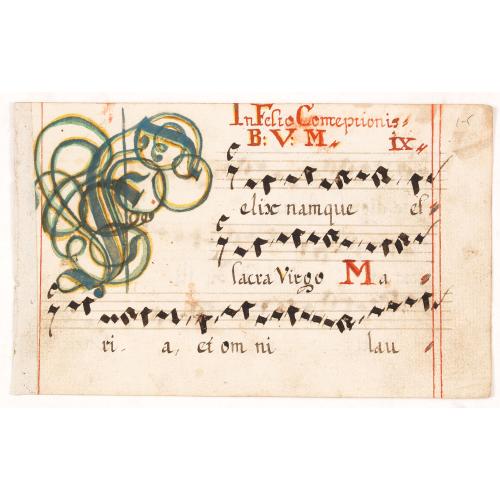 In Festo Conceptionis
B: V: M. IX
F elix namque es
sacra Virgo Ma
ri- a, et om ni lau